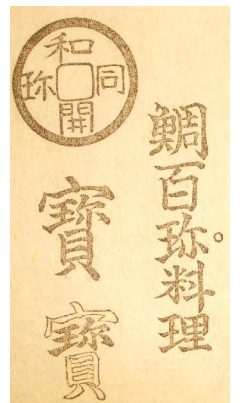 鯛百珎料理
和同開珎
寳
寳